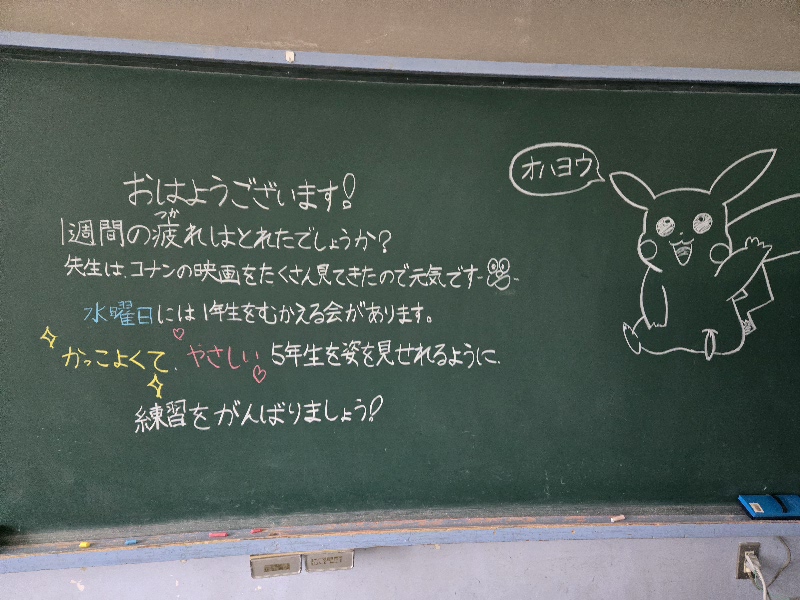 おはようございます!
1週間の疲れはとれたでしょうか?
つか
先生は、コナンの映画をたくさん見てきたので元気です
水曜日には1年生をむかえる会があります。
かっこよくて、やさしい5年生を姿を見せれるように、
練習をがんばりましょう!
オハヨウ